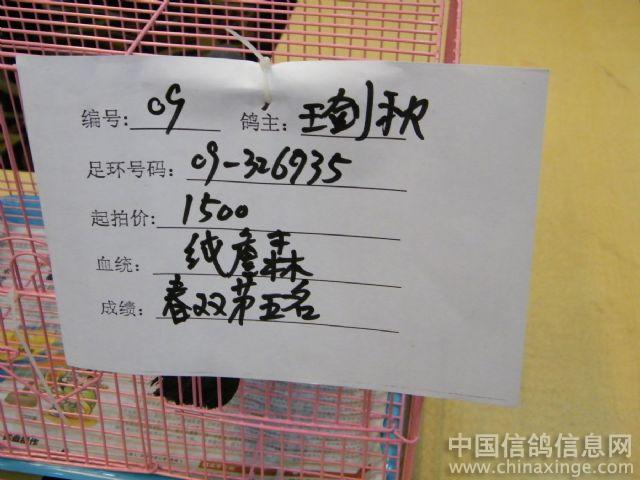 编号: 09 鸽主: 王剑秋
足环号码: 09-326935
起拍价: 1500
血统: 纯詹森
成绩: 春双第五名
中国信鸽信息网
www.chinaxinge.com